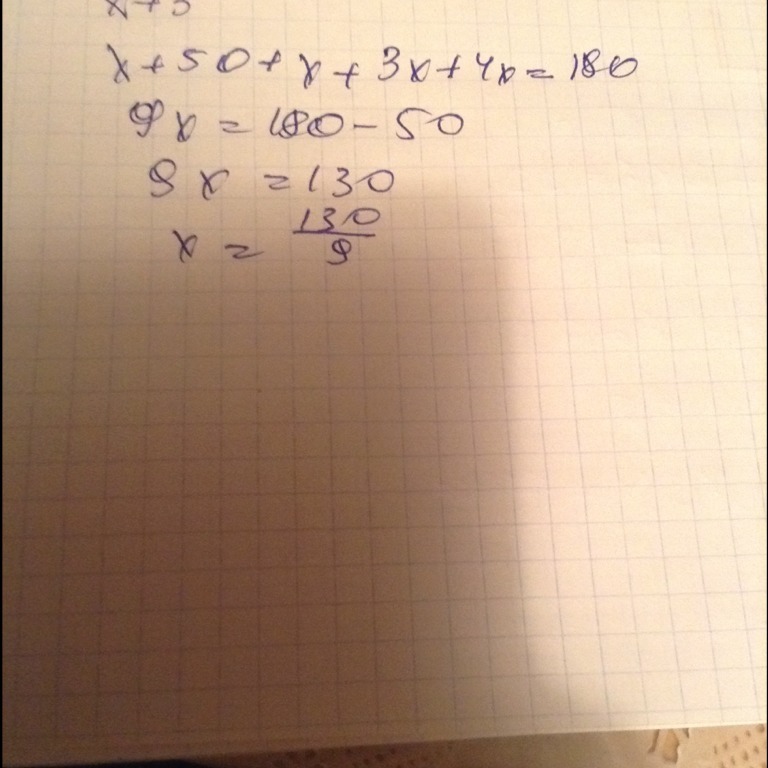 x + 5
x + 50 + x + 3x + 4x = 180
9x = 180 - 50
9x = 130
x = 130/9